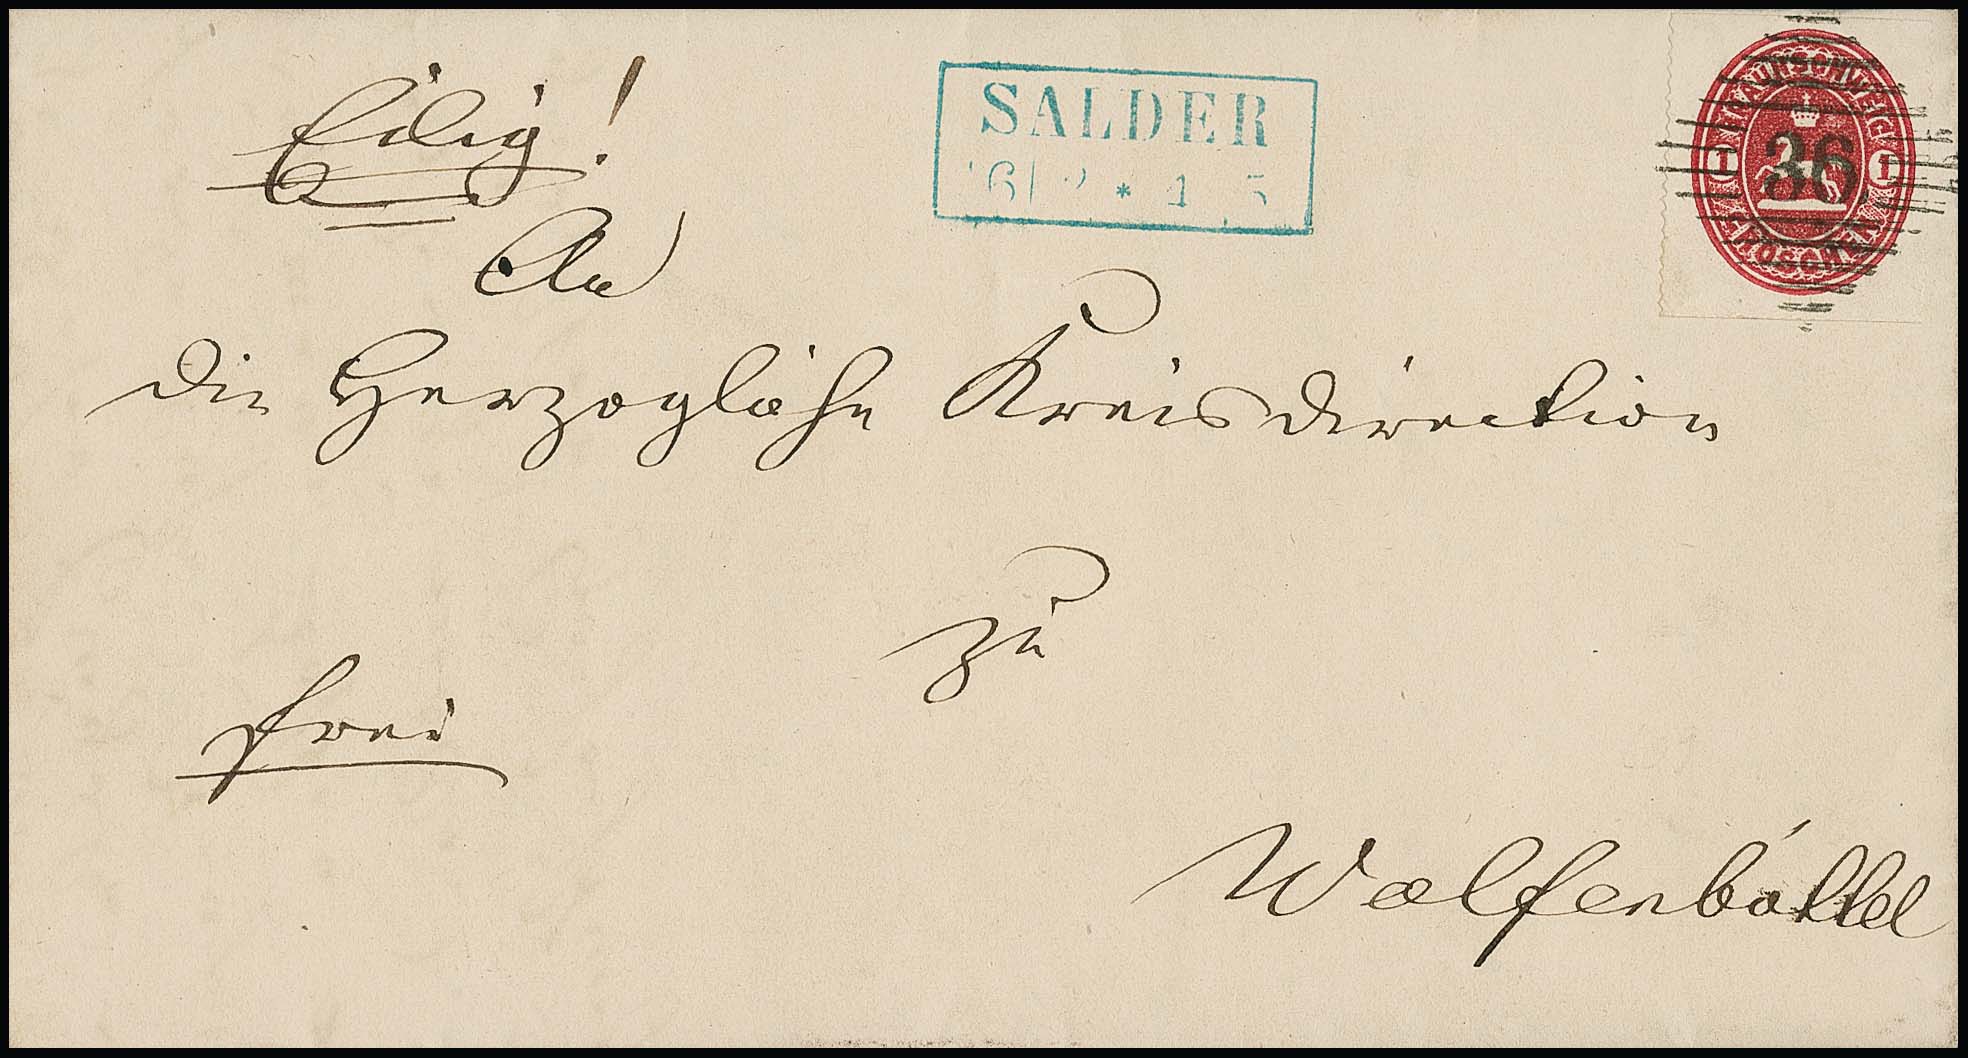 Eilig!
SALDER
BRAUNSCHWEIG
1 36 1
GROSCHEN
An
die Herzogliche Kreisdirection
zu
frei
Wolfenbüttel